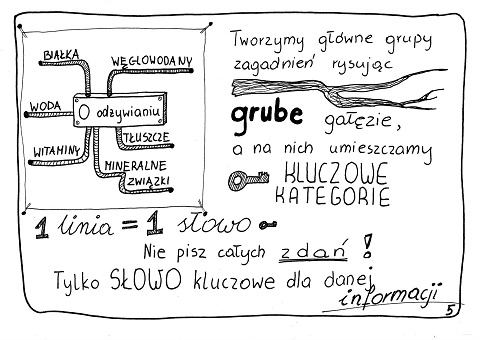 BIAŁKA
WĘGLOWODANY
WODA
O odżywianiu
WITAMINY
TŁUSZCZE
MINERALNE
ZWIĄZKI
Tworzymy główne grupy
zagadnień rysując
grube gałęzie,
a na nich umieszczamy
KLUCZOWE
KATEGORIE
1 linia = 1 słowo
Nie pisz całych zdań!
Tylko SŁOWO kluczowe dla danej
informacji
5